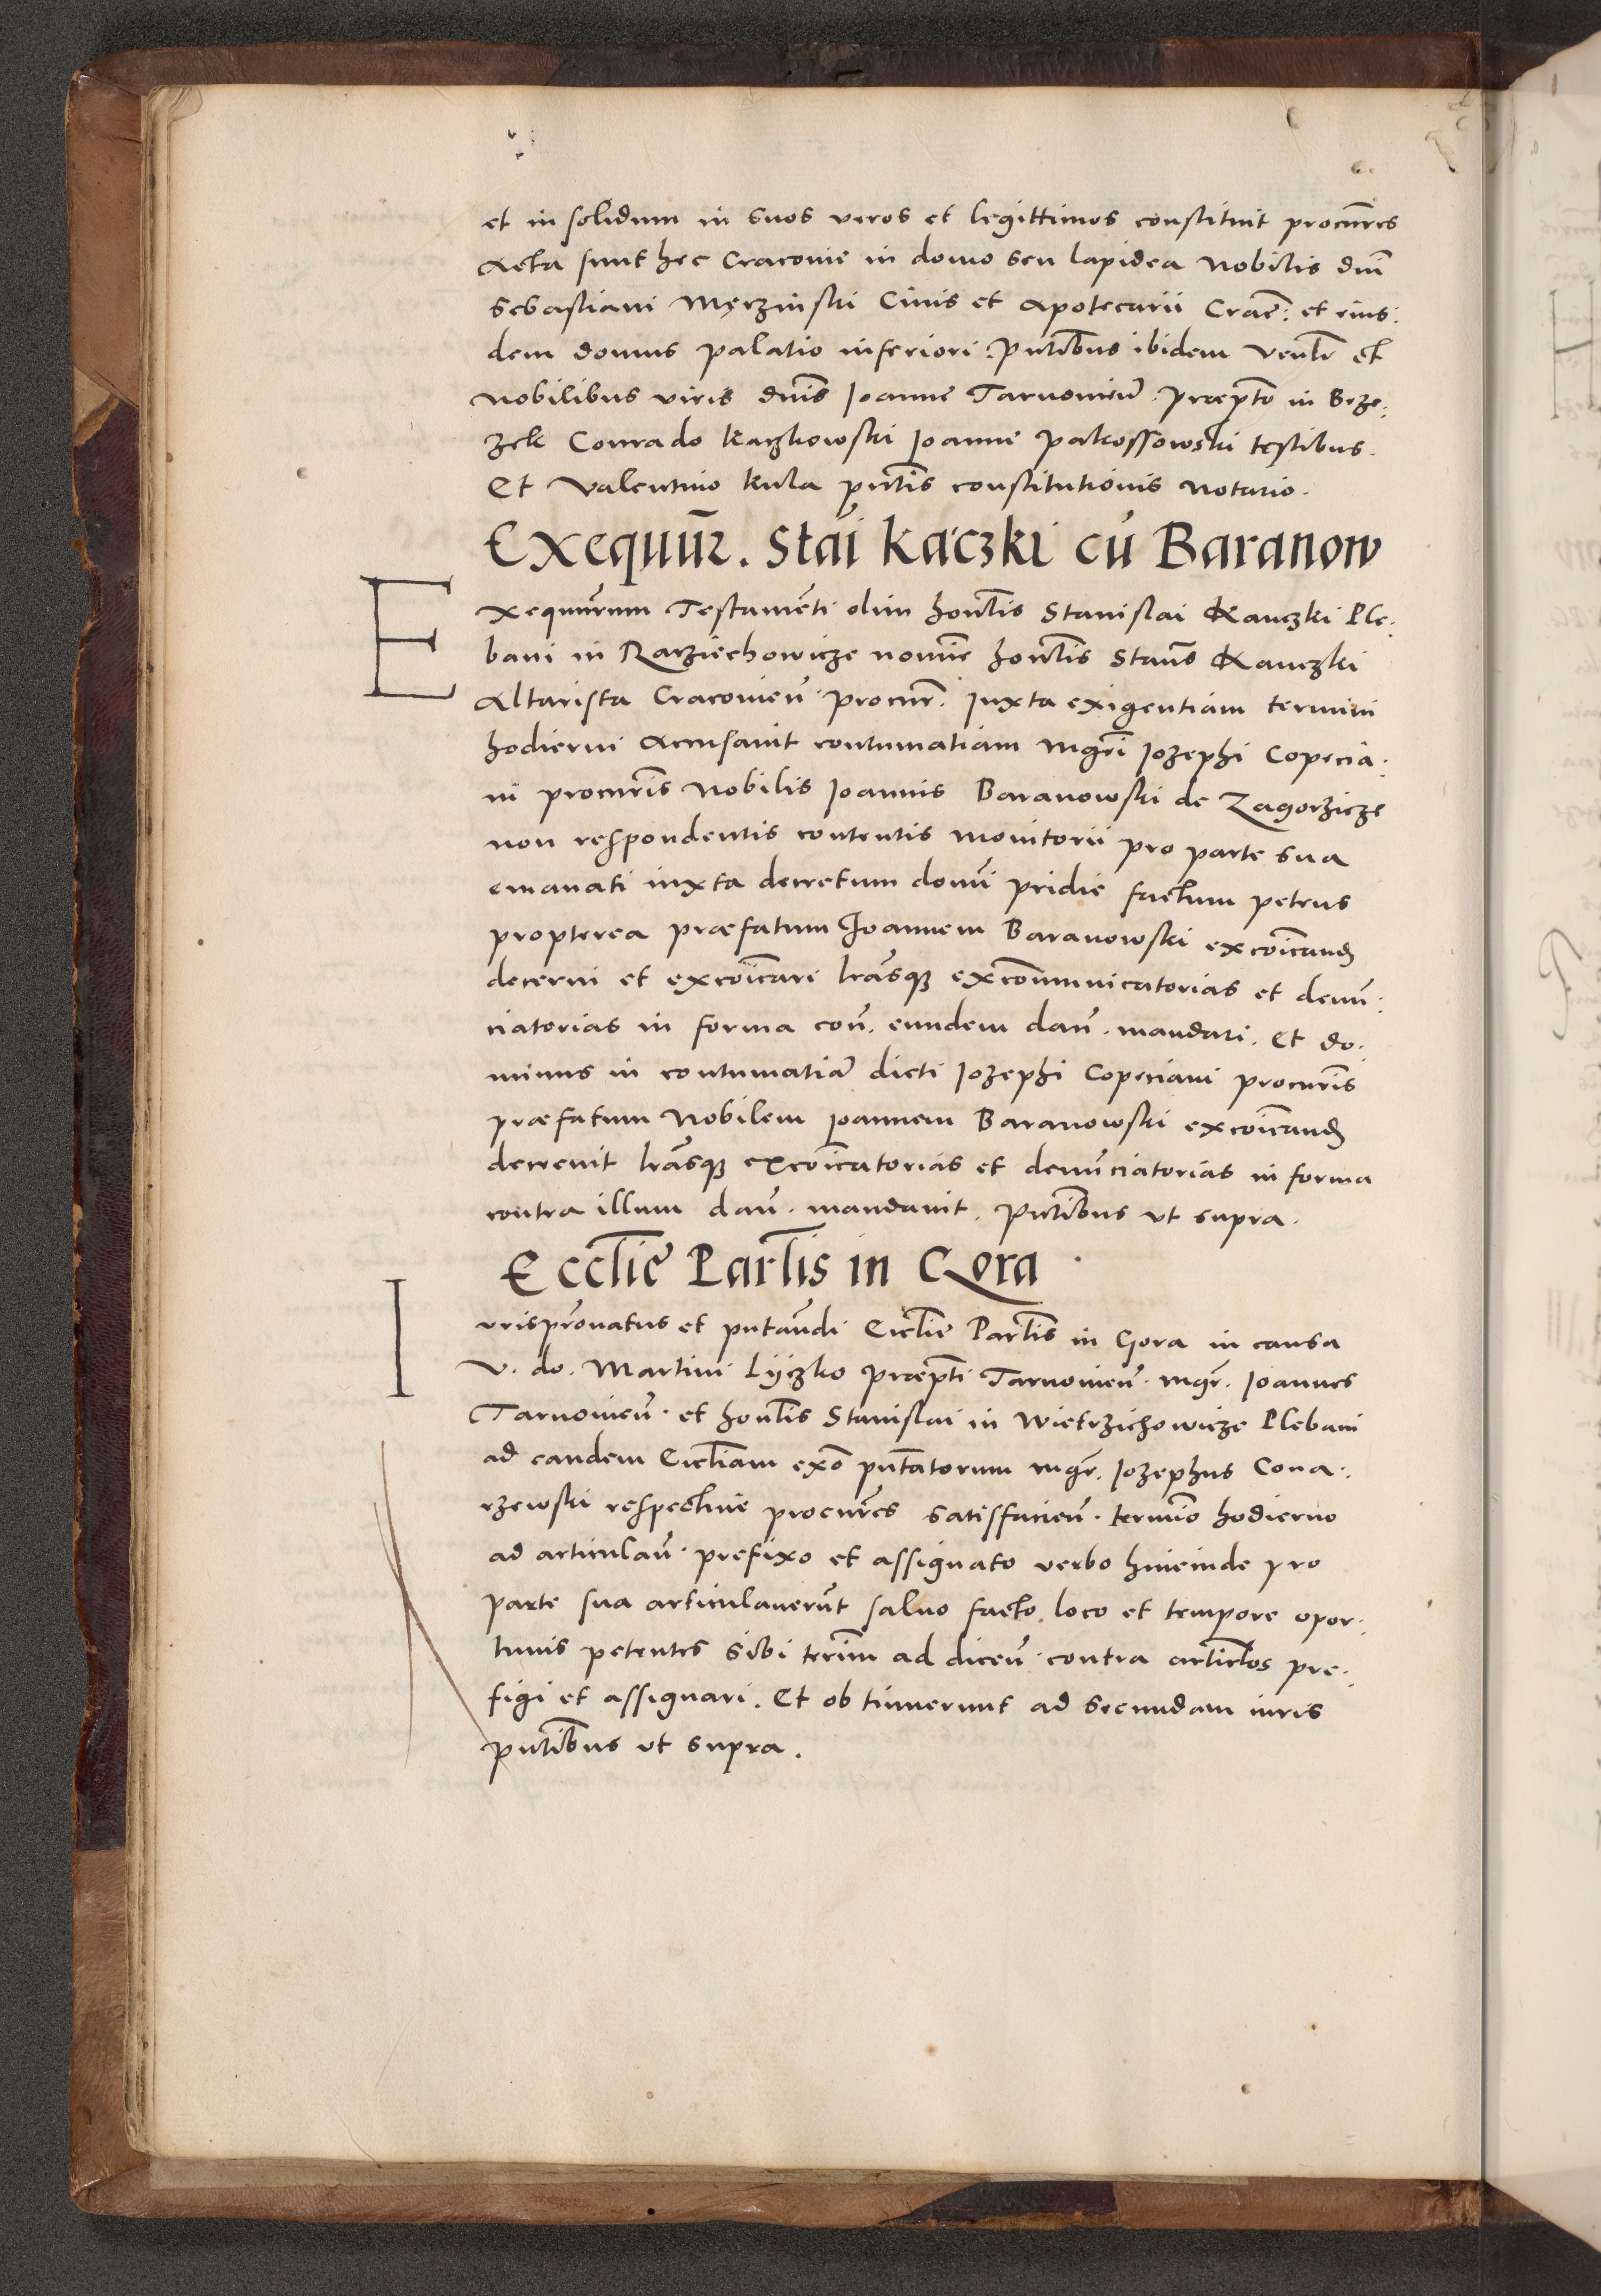 et in solidum in suos veros et legittimos constituit procur̃es
Acta sunt hec Cracovie in domo seu lapidea Nobilis dnĩ
Sebastiani Męrzinski Civis et Apotecarii Crac̃: et eius:
dem domus palatio inferiori. Pñtibus ibidem Ven̄li et
nobilibus viris dnĩs Joanne Tarnovieñ. Præpto in Brze:
zek Conrado Kaczkowski Joanne Pakossowski testibus.
Et Valentino Kula pñtis constitutionis notario.
Exequut̃. Stãi Kaczki cũ Baranow
Exequutorum Testamẽti olim hon̄lis Stanislai Kanczki Ple:
bani in Racziechowicze nomĩe hon̄lis Stañs Kanczki
Altarista Cracovieñ procur̃. Juxta exigentiam termini
hodierni Accusavit contumatiam mgr̃i Jozephi Copecia:
ni procur̃is Nobilis Joannis Baranowski de Zagorzicze
non respondentis contentis monitorii pro parte sua
emanati iuxta decretum domĩ pridie factum petens
propterea præfatum Joannem Baranowski excõicand̃
decerni et excõicari l̃rasq̃ excõmmunicatorias et denũ:
ciatorias in forma coñ. eundem dañ. mandari. Et do:
minus in contumatiã dicti Jozephi Copeciani procur̃is
præfatum Nobilem Joannem Baranowski excõicand̃
decrevit l̃rasq̃ excõicatorias et denũciatorias in forma
contra illum dañ. mandavit. Pñtibus ut supra.
Ecclie Parlis in Gora
Jurispr̃onatus et pñtandi Ecclie Parlis in Gora in causa
V. do. Martini Lyczko Præpti Tarnovieñ. mgr̃. Joannes
Tarnovieñ. et hon̄lis Stanislai in Wietrzichowicze Plebani
ad eandem Eccliam exõ pñtatorum mgr̃. Jozephus Cona:
rzewski respective procur̃es satisfacieñ. termĩo hodierno
ad articulañ. prefixo et assignato verbo hincinde pro
parte sua articulaverũt salvo facto loco et tempore opor:
tunis petentes sibi term̃i ad diceñ. contra articl̃os pre:
figi et assignari. Et obtinuerunt ad secundam iuris
pñtibus ut supra.